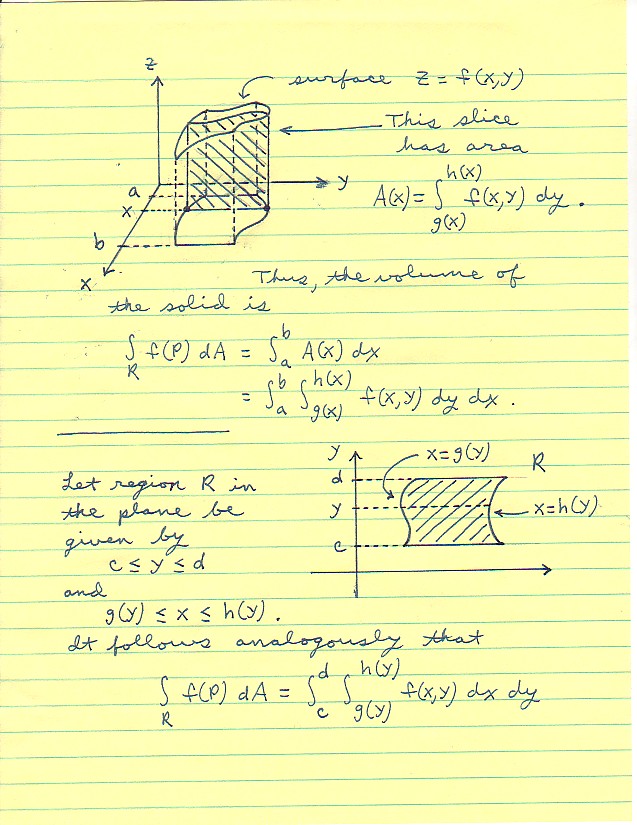 z
surface z = f(x,y)
This slice
has area
y
a
x
b
x
A(x) = ∫_{g(x)}^{h(x)} f(x,y) dy .
Thus, the volume of
the solid is
∫_R f(P) dA = ∫_a^b A(x) dx
= ∫_a^b ∫_{g(x)}^{h(x)} f(x,y) dy dx .
Let region R in
the plane be
given by
c ≤ y ≤ d
and
g(y) ≤ x ≤ h(y) .
y
d
y
c
x=g(y)
R
x=h(y)
It follows analogously that
∫_R f(P) dA = ∫_c^d ∫_{g(y)}^{h(y)} f(x,y) dx dy